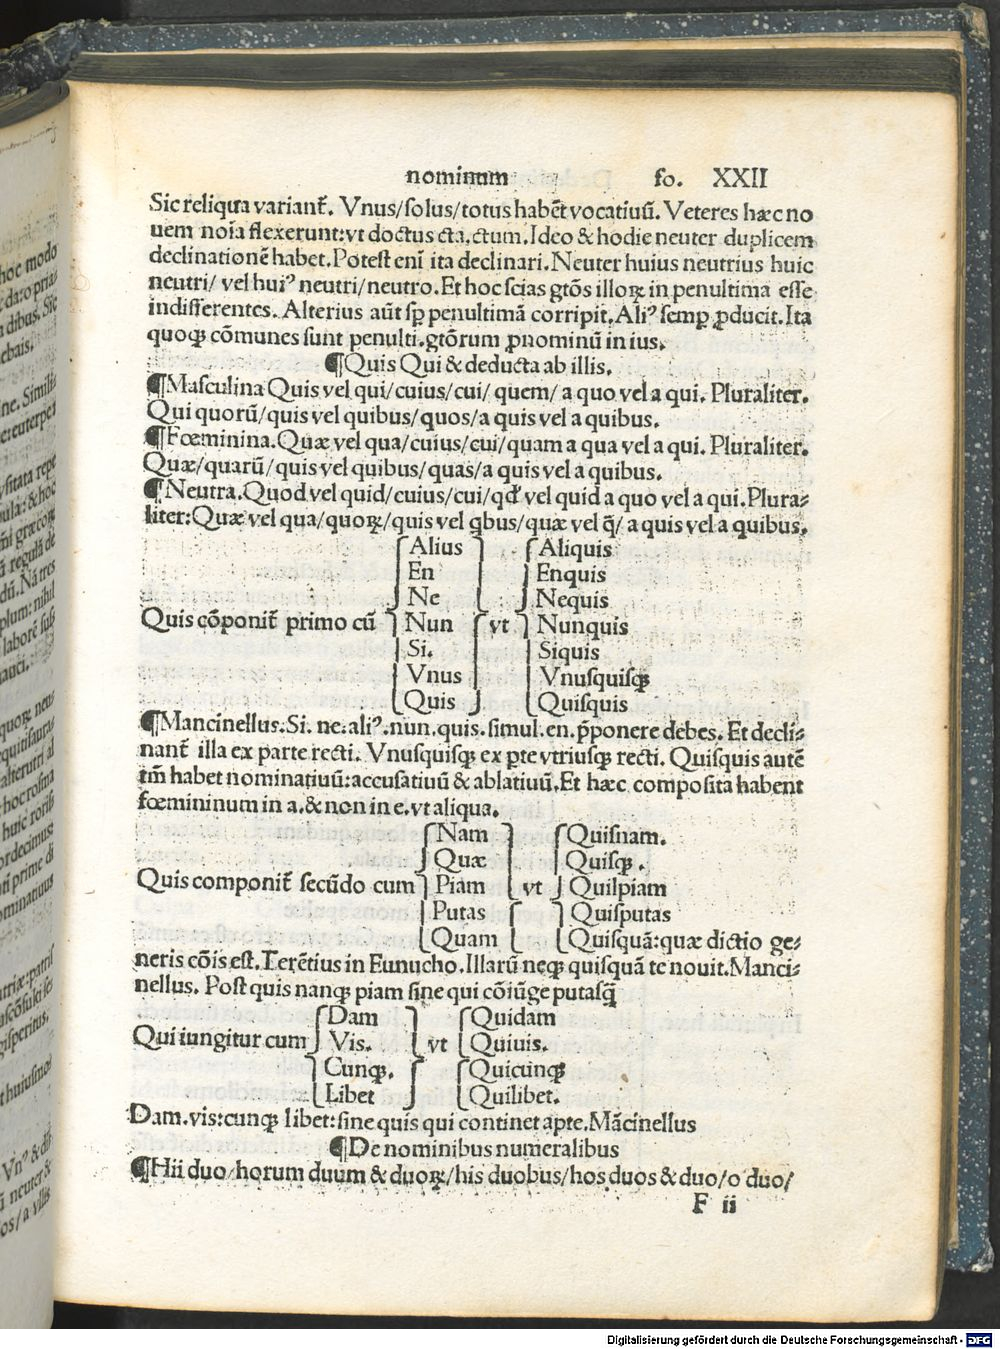 nominum fo. XXII
Sic reliqua variant̄. Vnus/solus/totus habēt vocatiuū. Veteres hæc no
uem noīa flexerunt:vt doctus cta,ctum. Ideo & hodie neuter duplicem
declinationē habet. Potest enī ita declinari. Neuter huius neutrius huic
neutri/ vel huiꝰ neutri/neutro. Et hoc scias gtōs illoꝝ in penultima esse
indifferentes. Alterius aūt sꝑ penultimā corripit. Aliꝰ semꝑ ꝓducit. Ita
quoqꝫ cōmunes sunt penulti. gtōrum ꝓnominū in ius.
¶Quis Qui & deducta ab illis.
¶Masculina Quis vel qui/cuius/cui/ quem/ a quo vel a qui. Pluraliter.
Qui quorū/quis vel quibus/quos/a quis vel a quibus.
¶Fœminina. Quæ vel qua/cuius/cui/quam a qua vel a qui. Pluraliter.
Quæ/quarū/quis vel quibus/quas/a quis vel a quibus.
¶Neutra. Quod vel quid/cuius/cui/qd' vel quid a quo vel a qui. Plura⸗
liter: Quæ vel qua/quoꝝ/quis vel qbus/quæ vel q̄/ a quis vel a quibus.
Alius Aliquis
En Enquis
Ne Nequis
Quis cōponit̄ primo cū Nun vt Nunquis
Si. Siquis
Vnus Vnusquisqꝫ
Quis Quisquis
¶Mancinellus. Si. ne. aliꝰ. nun. quis. simul. en. p̄ponere debes. Et decli⸗
nant̄ illa ex parte recti. Vnusquisqꝫ ex ꝑte vtriusqꝫ recti. Quisquis autē
tm̄ habet nominatiuū: accusatiuū & ablatiuū. Et hæc composita habent
fœmininum in a. & non in e. vt aliqua.
Nam Quisnam.
Quæ Quisqꝫ.
Quis componit̄ secūdo cum Piam vt Quispiam
Putas Quisputas
Quam Quisquā: quæ dictio ge⸗
neris cōis est. Terētius in Eunucho. Illarū neqꝫ quisquā te nouit. Manci⸗
nellus. Post quis nanqꝫ piam sine qui cōiūge putasq̄
Dam Quidam
Qui iungitur cum Vis. vt Quiuis.
Cunqꝫ. Quicūnqꝫ
Libet Quilibet.
Dam. vis: cunqꝫ libet: sine quis qui continet apte. Mācinellus
¶De nominibus numeralibus
¶Hii duo/horum duum & duoꝝ/his duobus/hos duos & duo/o duo/
F ii
Digitalisierung gefördert durch die Deutsche Forschungsgemeinschaft - DFG